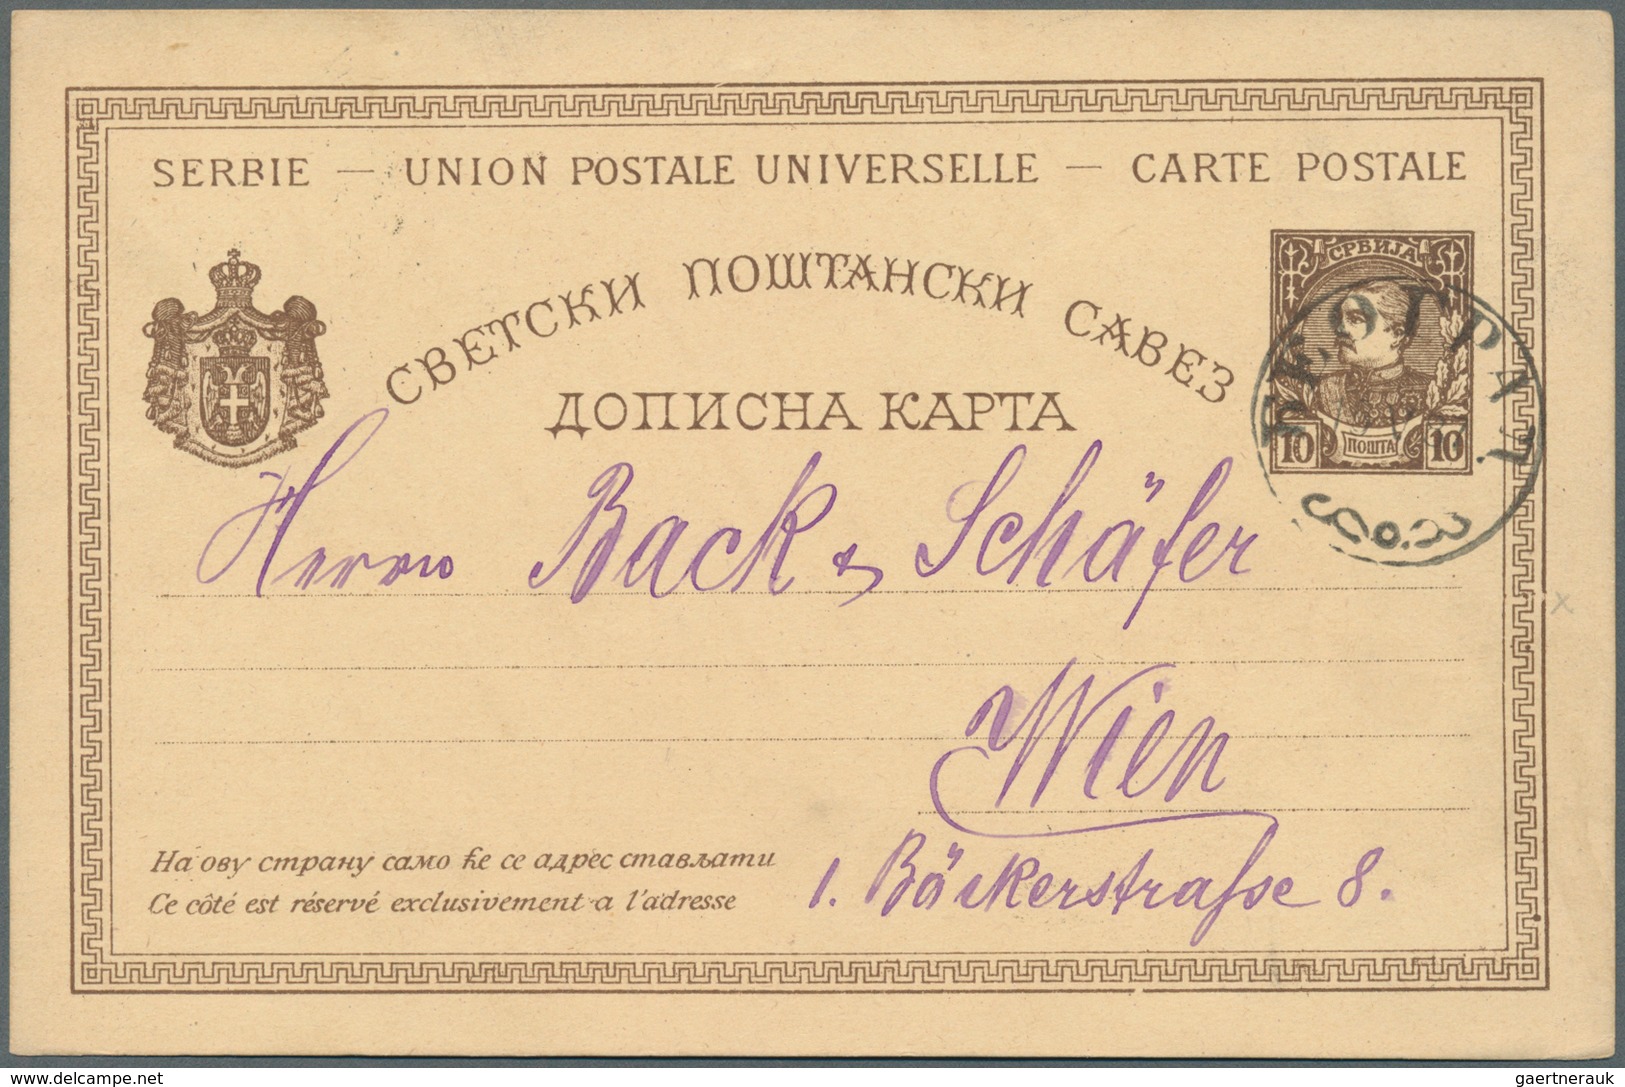 SERBIE — UNION POSTALE UNIVERSELLE — CARTE POSTALE
СРБИЈА
СВЕТСКИ ПОШТАНСКИ САВЕЗ
БЕОГРАД
ДОПИСНА КАРТА
10 ПОШТА 10
Herren Back & Schäfer
Wien
На ову страну само ће се адрес стављати
Ce côté est réservé exclusivement a l'adresse
1. Bäckerstraße 8.
delcampe.net
gaertnerauk